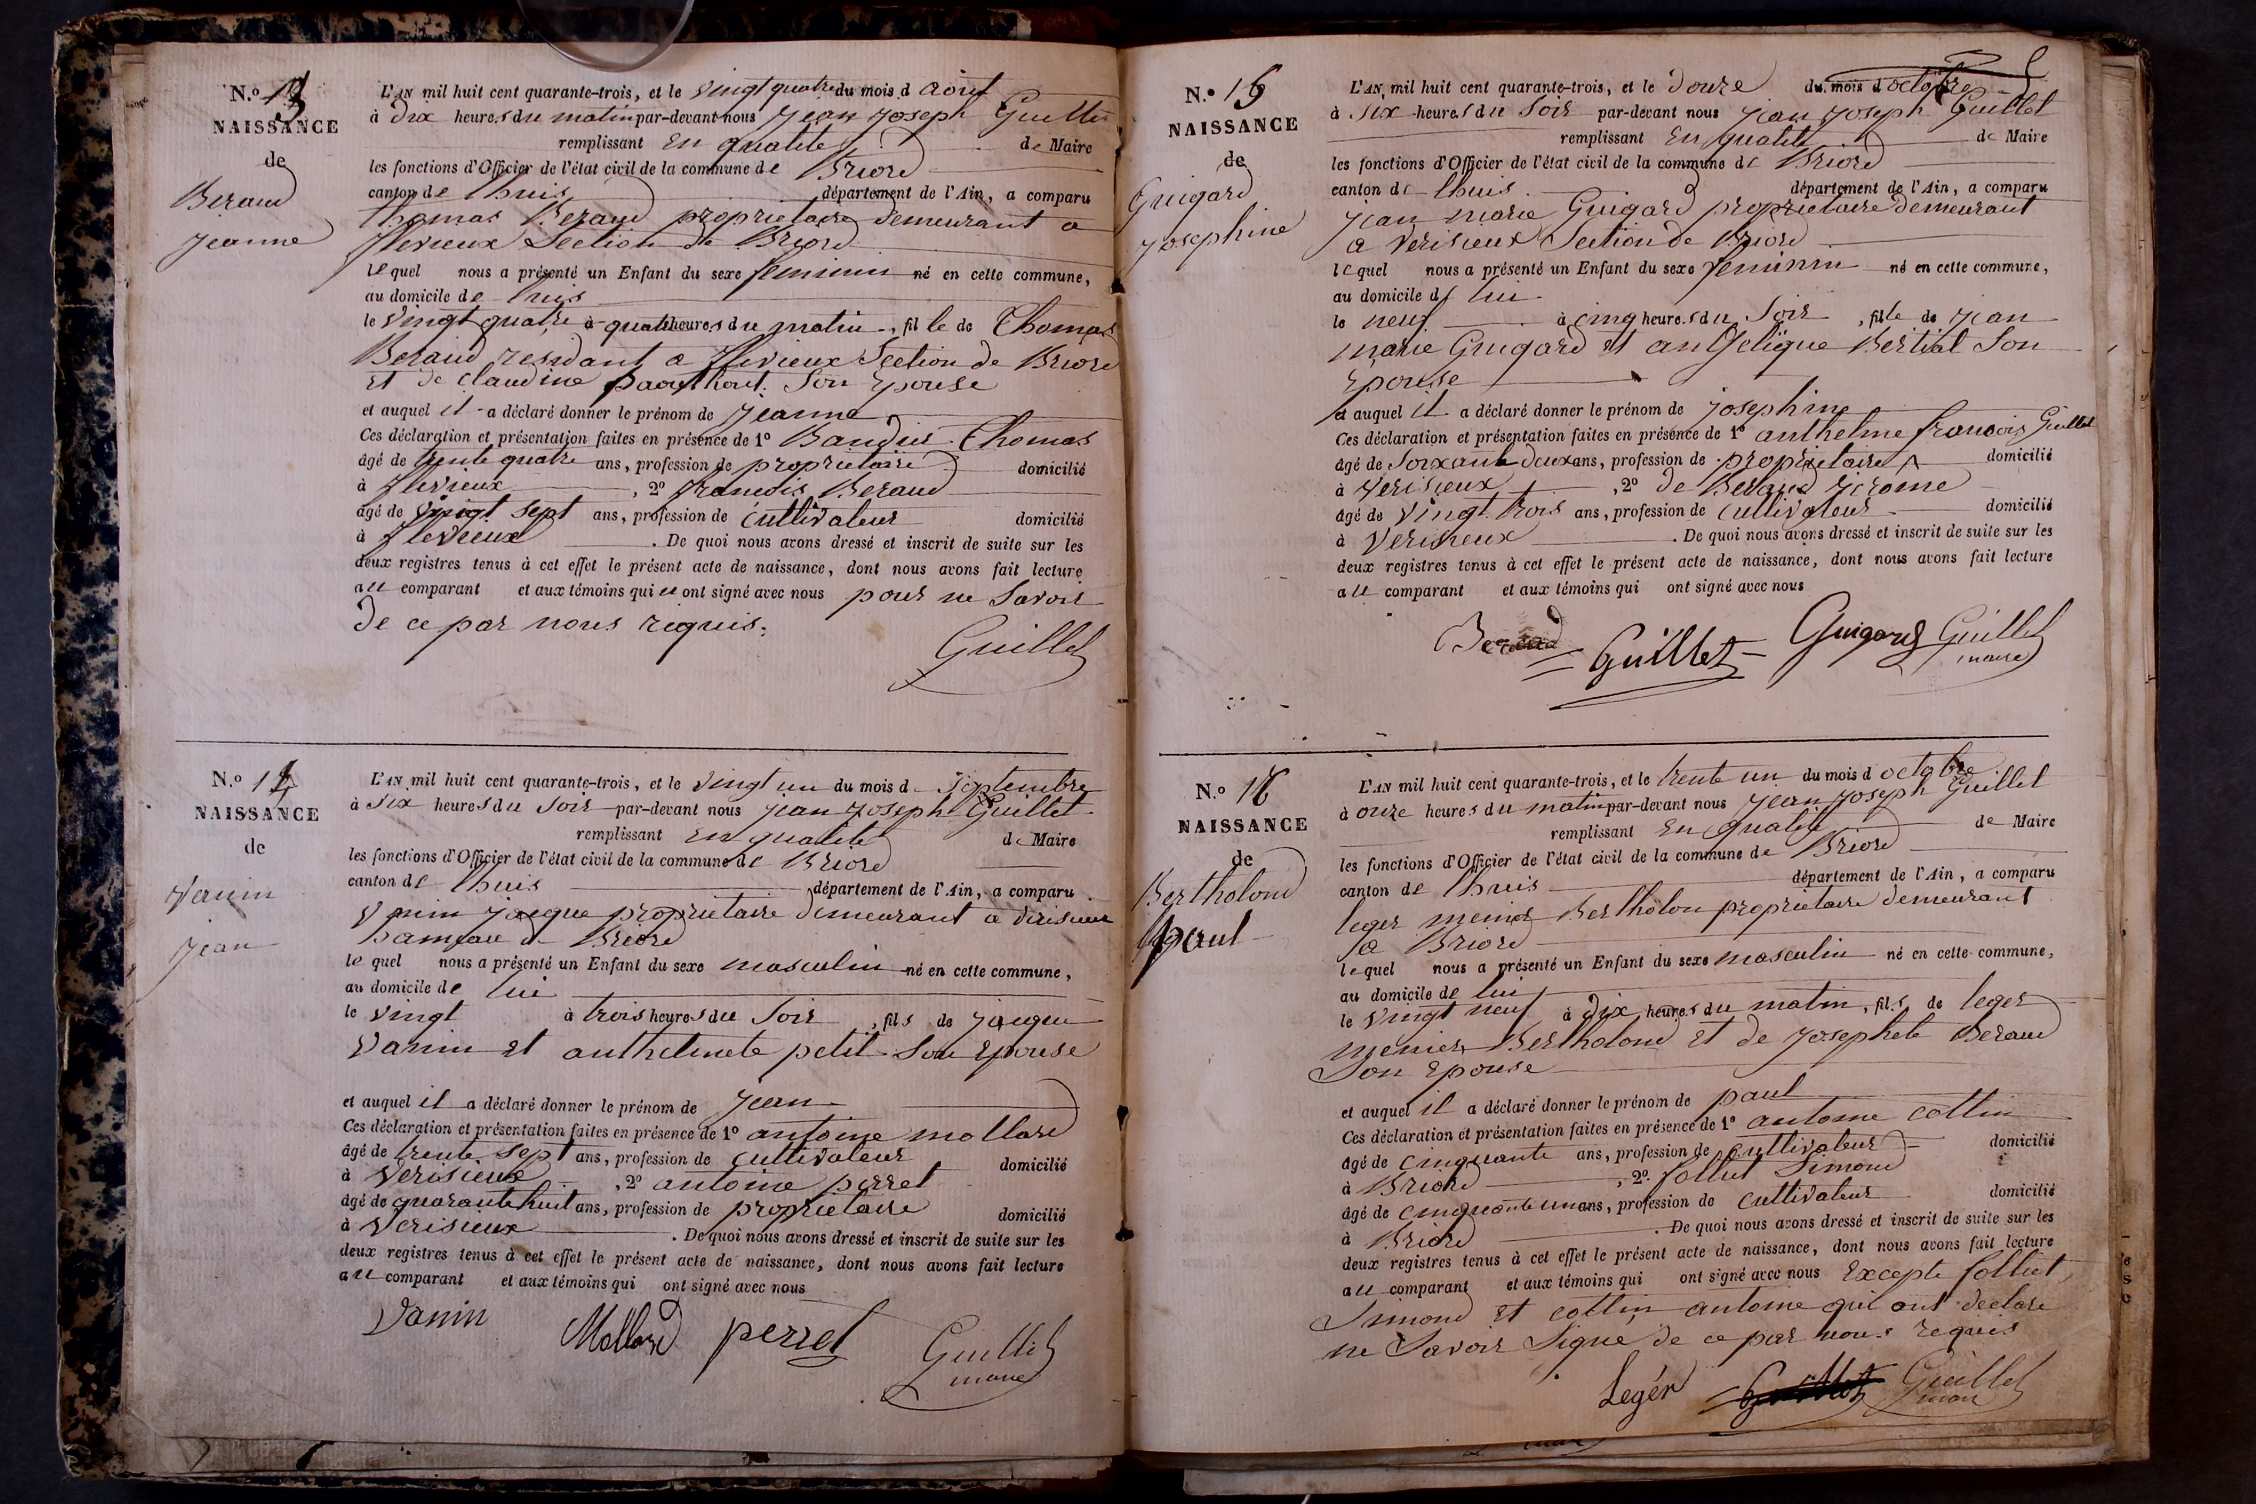 N.º 13
NAISSANCE
de
Beraud
Jeanne
L'AN mil huit cent quarante-trois, et le vingt quatre du mois d aout
à dix heures du matin par-devant nous Jean Joseph Guillet
remplissant En qualité de Maire
les fonctions d'Officier de l'état civil de la commune de Briord
canton de Lhuis département de l'Ain, a comparu
Thomas Beraud propriétaire demeurant a
flevieux Section de Briord
lequel nous a présenté un Enfant du sexe feminin né en cette commune,
au domicile de luis
le vingt quatre à quatre heures du matin, fil le de Thomas
Beraud residant a flevieux Section de Briord
Et de claudine Son Epouse
et auquel il a déclaré donner le prénom de Jeanne
Ces déclaration et présentation faites en présence de 1º Thomas
âgé de trente quatre ans, profession de propriétaire domicilié
à flevieux, 2º francois Beraud
âgé de vingt sept ans, profession de cultivateur domicilié
à flevieux. De quoi nous avons dressé et inscrit de suite sur les
deux registres tenus à cet effet le présent acte de naissance, dont nous avons fait lecture
au comparant et aux témoins qui n ont signé avec nous pour ne Savoir
de ce par nous requis.
Guillet
N.º 14
NAISSANCE
de
Vanin
Jean
L'AN mil huit cent quarante-trois, et le vingt un du mois d Septembre
à Six heures du Soir par-devant nous Jean Joseph Guillet
remplissant En qualité de Maire
les fonctions d'Officier de l'état civil de la commune de Briord
canton de Lhuis département de l'Ain, a comparu
Vanin Jacque propriétaire demeurant a verisieux
hameau de Briord
le quel nous a présenté un Enfant du sexe masculin né en cette commune,
au domicile de lui
le vingt à trois heures du Soir, fils de Jacque
Vanin Et anthelmete petit Son Epouse
et auquel il a déclaré donner le prénom de Jean
Ces déclaration et présentation faites en présence de 1º antoine mollard
âgé de trente Sept ans, profession de cultivateur domicilié
à Verisieux, 2º antoine perret
âgé de quarante huit ans, profession de propriétaire domicilié
à Verisieux. De quoi nous avons dressé et inscrit de suite sur les
deux registres tenus à cet effet le présent acte de naissance, dont nous avons fait lecture
au comparant et aux témoins qui ont signé avec nous
Vanin Mollard perret Guillet
maire
N.º 15
NAISSANCE
de
Guigard
Josephine
L'AN mil huit cent quarante-trois, et le douze du mois d octobre
à Six heures du Soir par-devant nous Jean Joseph Guillet
remplissant En qualité de Maire
les fonctions d'Officier de l'état civil de la commune de Briord
canton de Lhuis département de l'Ain, a comparu
Jean marie Guigard propriétaire demeurant
a Verisieux Section de Briord
le quel nous a présenté un Enfant du sexe feminin né en cette commune,
au domicile de lui
le neuf à cinq heures du Soir, fille de Jean
marie Guigard Et angelique Bertiat Son
Epouse
et auquel il a déclaré donner le prénom de Josephine
Ces déclaration et présentation faites en présence de 1º anthelme francois Guillet
âgé de Soixante deux ans, profession de propriétaire domicilié
à Verisieux, 2º de Beraud Jerome
âgé de vingt trois ans, profession de cultivateur domicilié
à Verisieux. De quoi nous avons dressé et inscrit de suite sur les
deux registres tenus à cet effet le présent acte de naissance, dont nous avons fait lecture
au comparant et aux témoins qui ont signé avec nous
Beraud Guillet Guigard Guillet
maire
N.º 16
NAISSANCE
de
Bertholond
paul
L'AN mil huit cent quarante-trois, et le trente un du mois d octobre
à onze heures du matin par-devant nous Jean Joseph Guillet
remplissant En qualité de Maire
les fonctions d'Officier de l'état civil de la commune de Briord
canton de Lhuis département de l'Ain, a comparu
leger Bertholon propriétaire demeurant
a Briord
lequel nous a présenté un Enfant du sexe masculin né en cette commune,
au domicile de lui
le vingt neuf à dix heures du matin, fils de leger
Bertholond Et de Josephete Beraud
Son Epouse
et auquel il a déclaré donner le prénom de paul
Ces déclaration et présentation faites en présence de 1º antoine cottin
âgé de cinquante ans, profession de cultivateur domicilié
à Briord, 2º folliet Simond
âgé de cinquante un ans, profession de cultivateur domicilié
à Briord. De quoi nous avons dressé et inscrit de suite sur les
deux registres tenus à cet effet le présent acte de naissance, dont nous avons fait lecture
au comparant et aux témoins qui ont signé avec nous Excepte folliet
Simond Et cottin antoine qui ont declare
ne Savoir Signe de ce par nous requis
Legér Guillet
maire